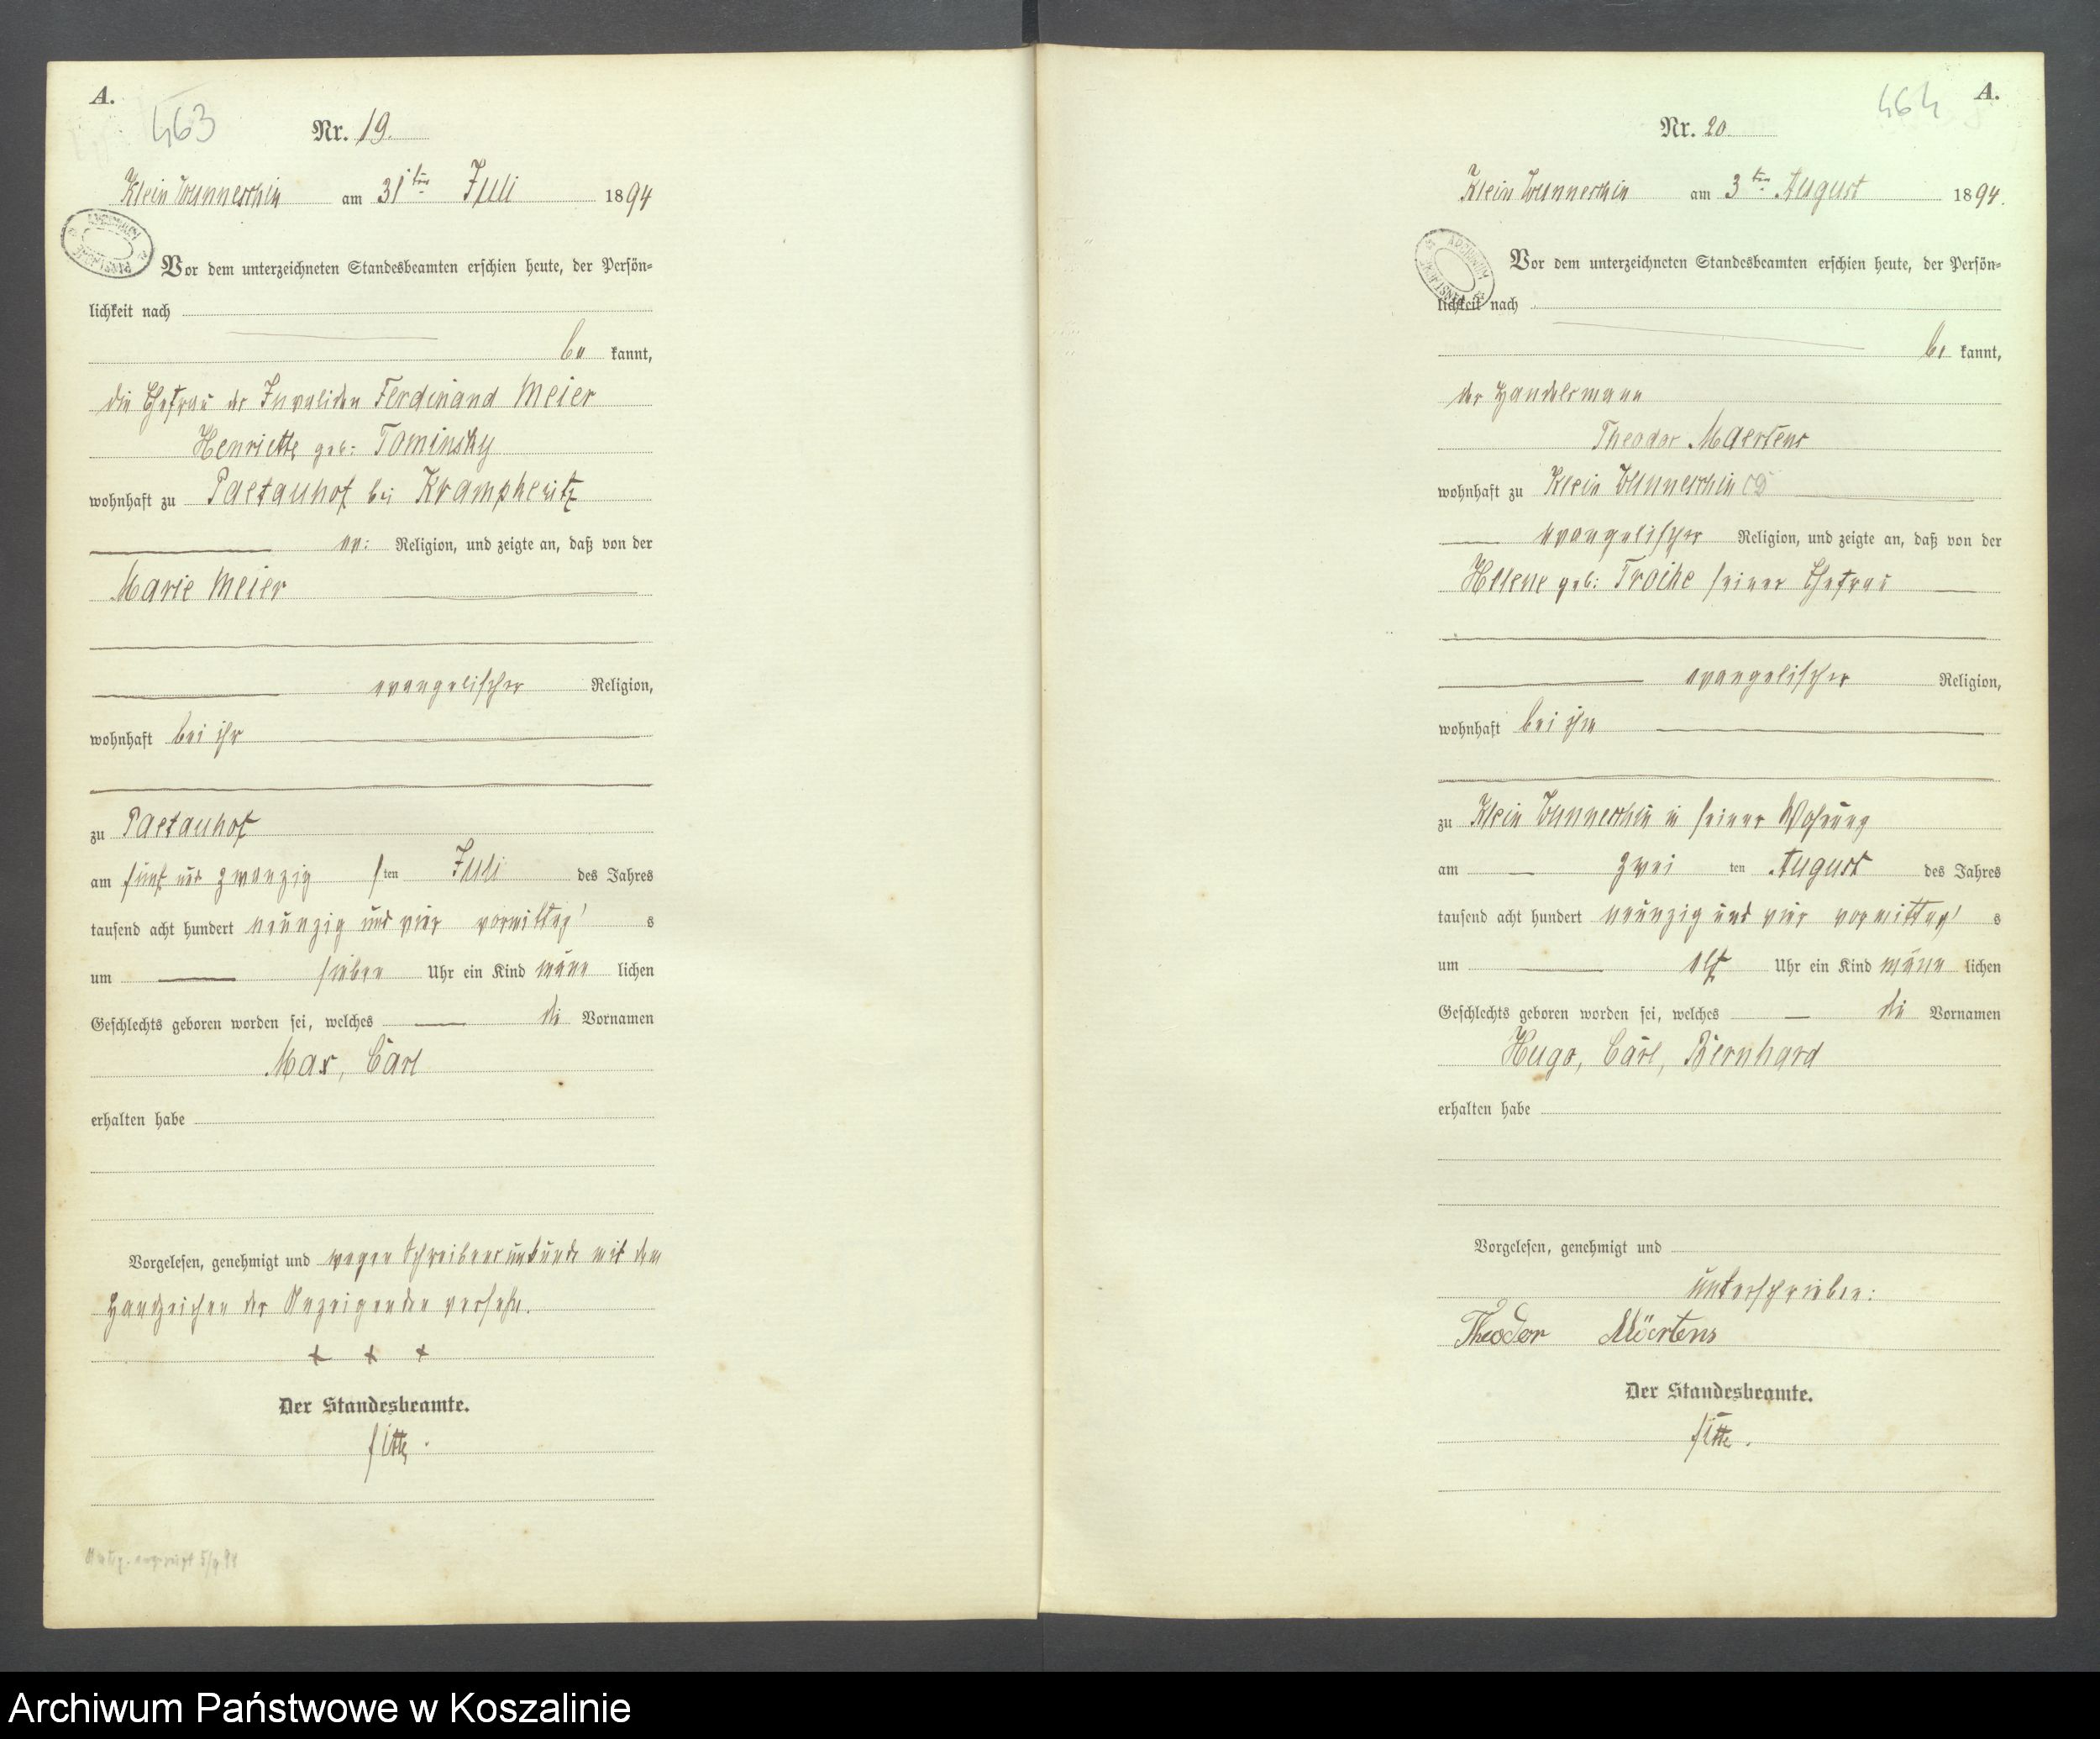 A.
463
Nr. 19.
Klein Wunneschin am 31ten Juli 1894
ARCHIWUM PAŃSTWOWE
Vor dem unterzeichneten Standesbeamten erschien heute, der Persön-
lichkeit nach
be kannt,
die Ehefrau des Invaliden Ferdinand Meier
Henriette geb: Tominsky
wohnhaft zu Paetauhof bei Krampkewitz
ev: Religion, und zeigte an, daß von der
Marie Meier
evangelischer Religion,
wohnhaft bei ihr
zu Paetauhof
am fünf und zwanzig sten Juli des Jahres
tausend acht hundert neunzig und vier vormittag s
um sieben Uhr ein Kind männ lichen
Geschlechts geboren worden sei, welches die Vornamen
Max, Carl
erhalten habe
Vorgelesen, genehmigt und wegen Schreibensunkunde mit dem
Handzeichen der Anzeigenden versehn.
+ + +
Der Standesbeamte.
A.
464
Nr. 20.
Klein Wunneschin am 3ten August 1894.
ARCHIWUM PAŃSTWOWE
Vor dem unterzeichneten Standesbeamten erschien heute, der Persön-
lichkeit nach
be kannt,
der Handelsmann
Theodor Maertens
wohnhaft zu Klein Wunneschin
evangelischer Religion, und zeigte an, daß von der
Helene geb: Troike seiner Ehefrau
evangelischer Religion,
wohnhaft bei ihm
zu Klein Wunneschin in seiner Wohnung
am zwei ten August des Jahres
tausend acht hundert neunzig und vier vormittag s
um elf Uhr ein Kind männ lichen
Geschlechts geboren worden sei, welches die Vornamen
Hugo, Carl, Bernhard
erhalten habe
Vorgelesen, genehmigt und
unterschrieben:
Theodor Märtens
Der Standesbeamte.
Archiwum Państwowe w Koszalinie